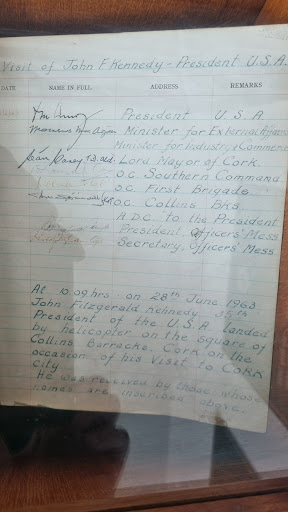 Visit of John F Kennedy - President U.S.A.
DATE NAME IN FULL ADDRESS REMARKS
President U. S. A.
Minister for External Affairs
Minister for Industry & Commerce
Seán Casey T.D. Lord Mayor of Cork.
O.C. Southern Command
O.C. First Brigade
O.C. Collins Bks
A.D.C. to the President
President, Officers' Mess
Secretary, Officers' Mess
At 10.09hrs on 28th June 1963
John Fitzgerald Kennedy 35th
President of the U.S.A landed
by helicopter on the square of
Collins Barracks. Cork on the
occasion of his visit to Cork
City
He was received by those whose
names are inscribed above.